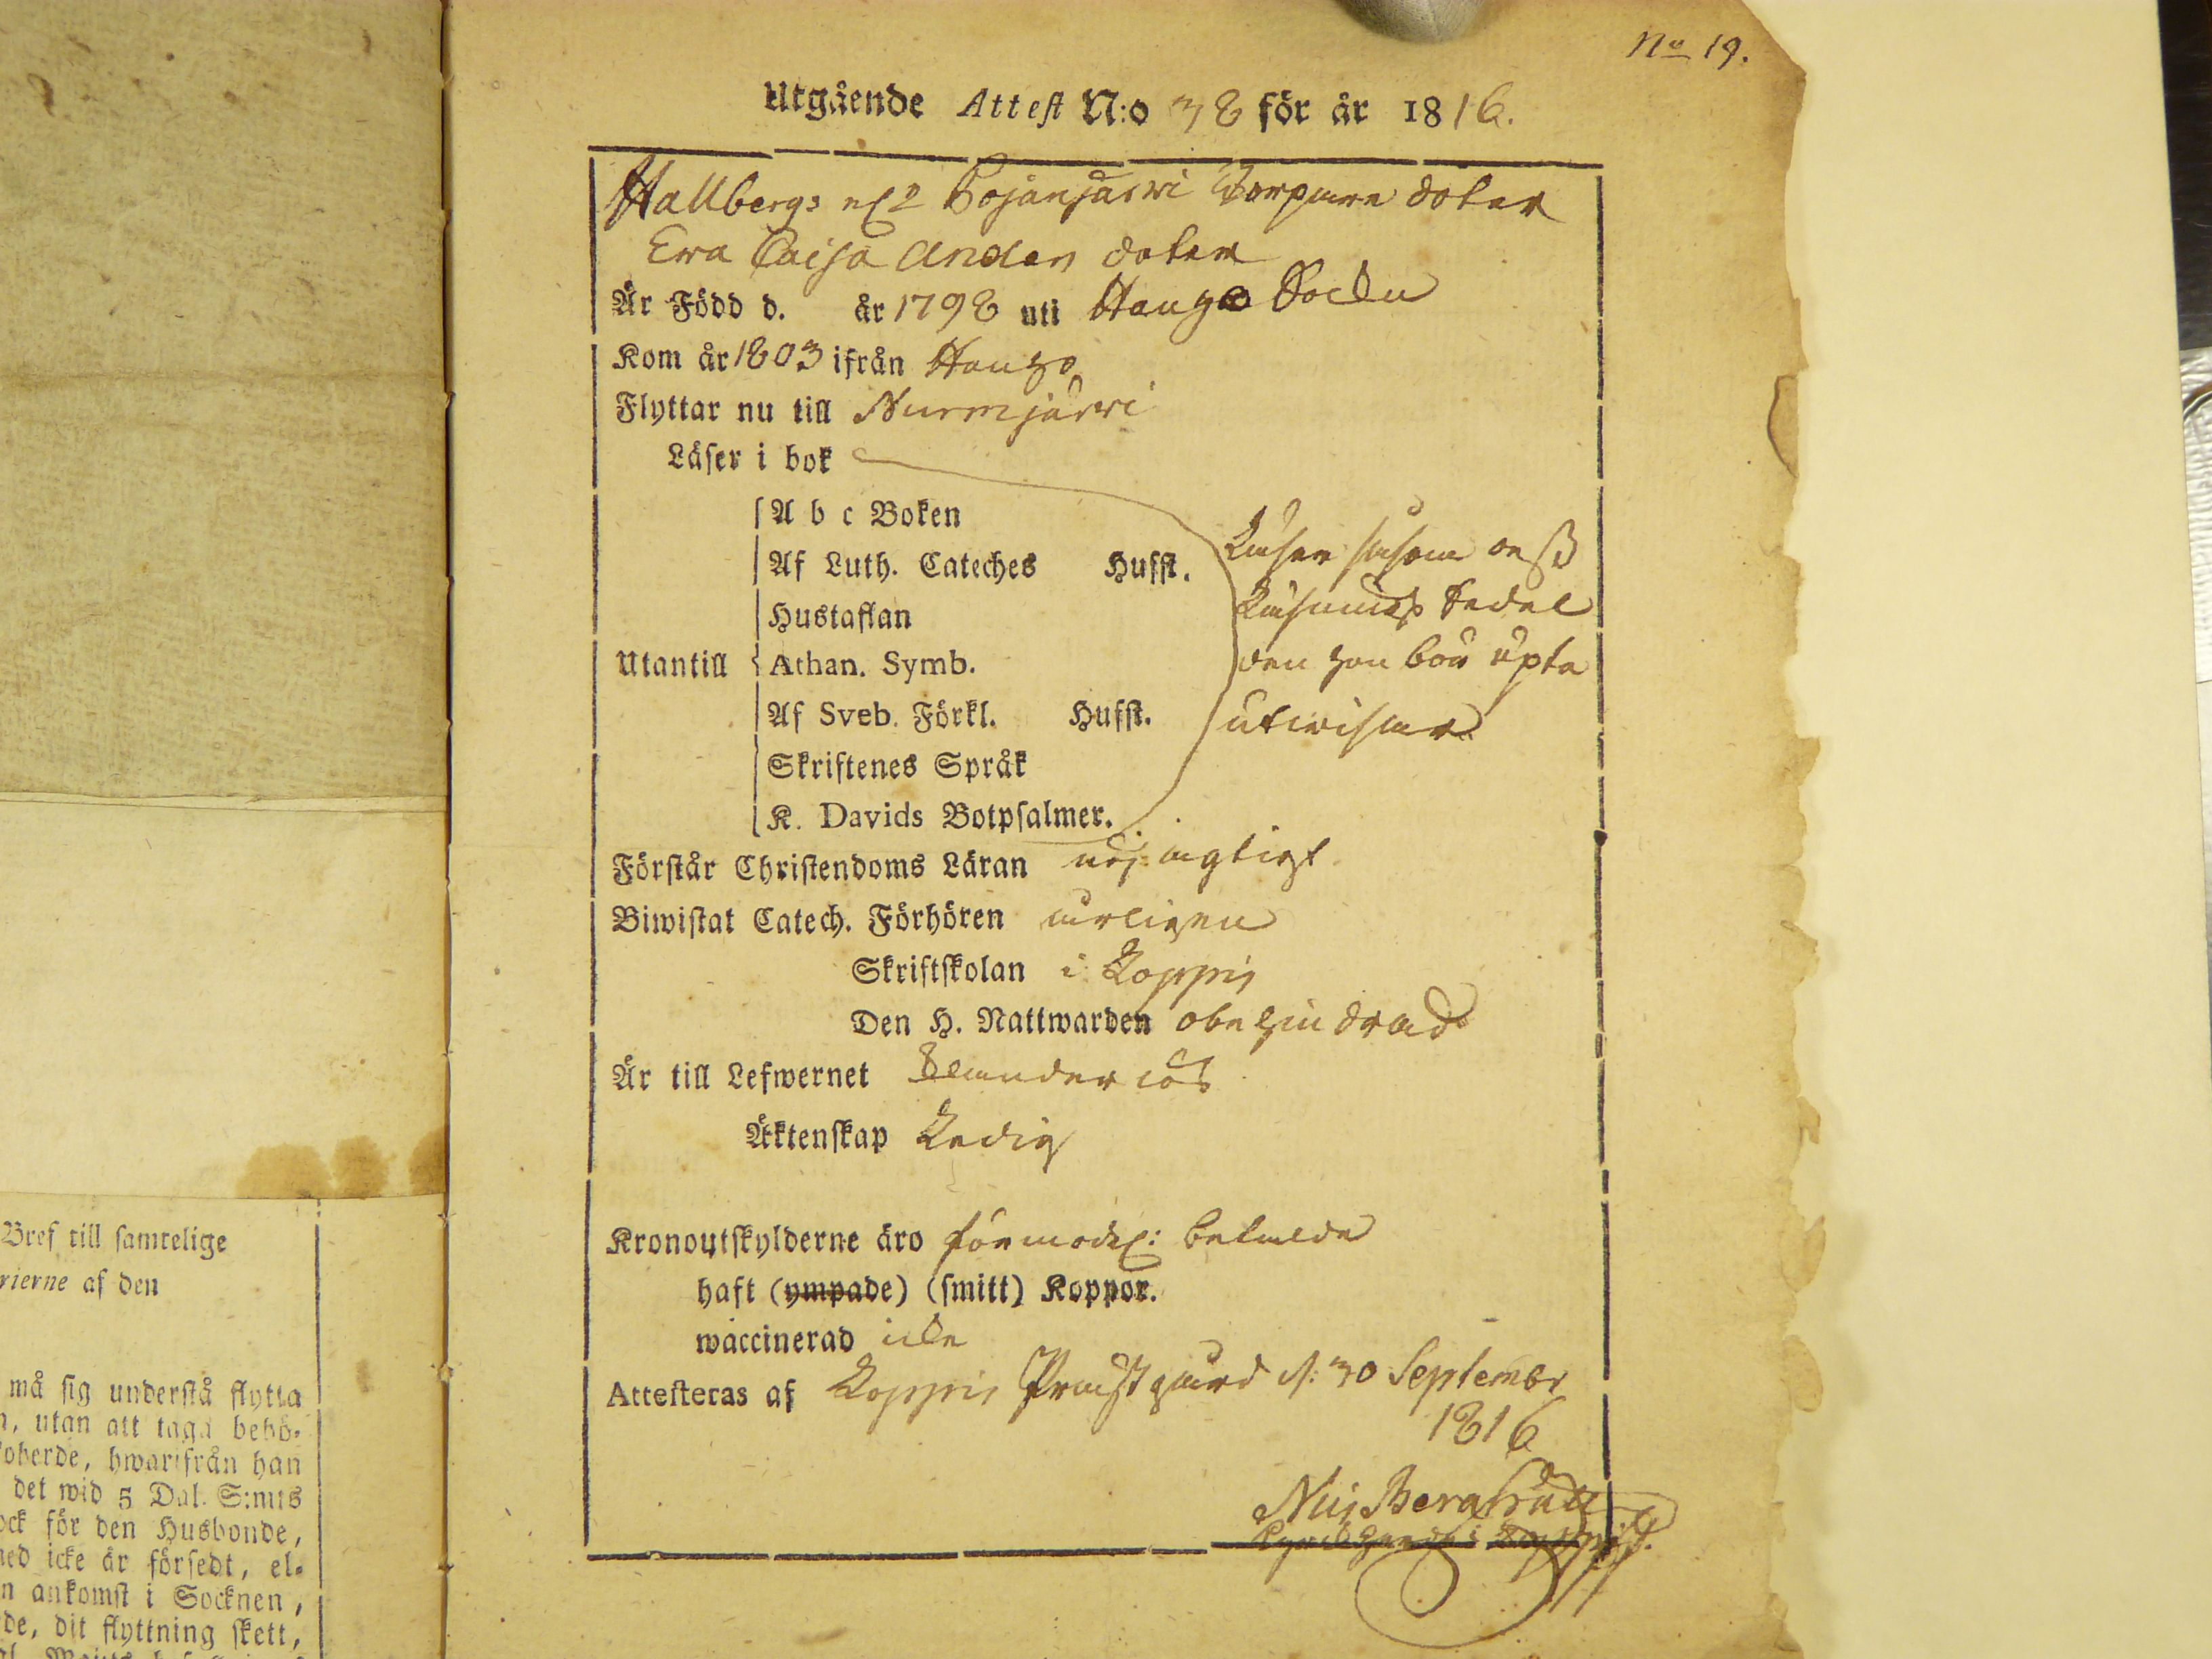 No 19.
Utgående Attest N:o 38 för år 1816.
Hallbergs Bojanjärwi Torpare doter
Ewa Caisa Anders doter
Är Född d. år 1798 uti Haugo Sockn
Kom år 1803 ifrån Haugo
Flyttar nu till Nurmjärwi
Läser i bok
A b c Boken
Af Luth. Cateches Hufst.
Hustaflan
Utantill Athan. Symb.
Af Sveb. Förkl. Hufst.
Skriftenes Språk
K. Davids Botpsalmer.
Läser såsom
Läsnings Sedel
den hon bör
utwisar
Förstår Christendoms Läran nöjagtigt
Biwistat Catech. Förhören årligen
Skriftskolan i Loppis
Den H. Nattwarden obehindrad
Är till Lefwernet
Äktenskap Ledig
Kronoutskylderne äro förmodl: betalde
haft (ympade) (smitt) Koppor.
waccinerad icke
Attesteras af Loppis Prästgård d. 30 Septembr
1816
Nils Bergstråll
Kyrckoherde i Loppis.
Bref till samtelige
rierne af den
må sig understå flytta
n, utan att taga behö-
oherde, hwarifrån han
det wid 5 Dal. S:mts
ock för den Husbonde,
ned icke är försedt, el-
n ankomst i Socknen,
de, dit flyttning skett,